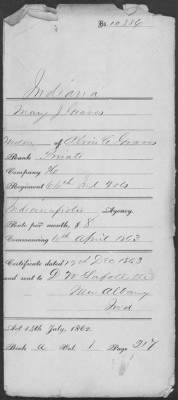 No. 10,886
Indiana
Mary J. Graves
Widow of Alvin C. Graves
Rank Private
Company H
Regiment 66th Ind Vols
Indianapolis Agency.
Rate per month, $8
Commencing 6th April 1863
Certificate dated 12d Dec 1863
and sent to D W Lafollette
New Albany
Ind
Act 14th July, 1862.
Book A Vol. 1 Page 217